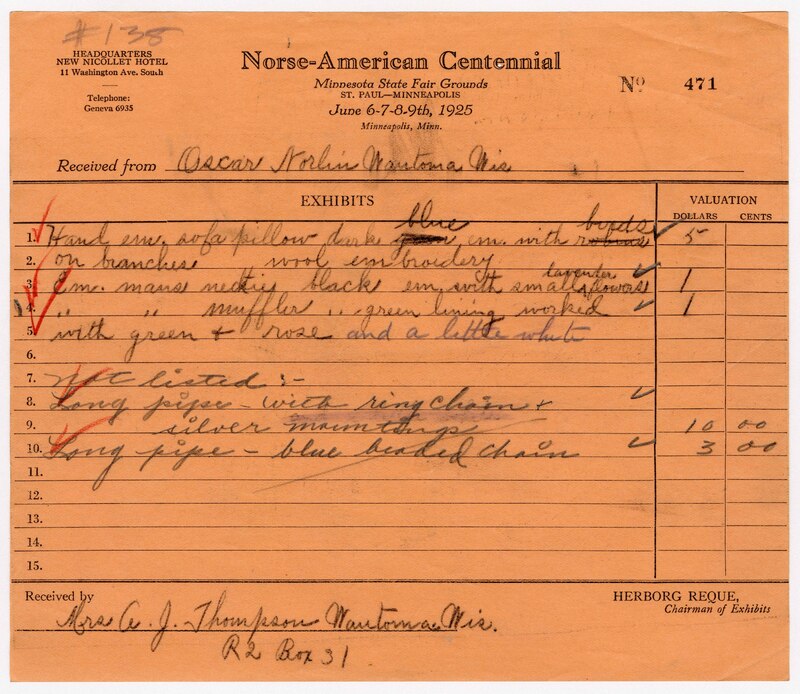 # 138
HEADQUARTERS
NEW NICOLLET HOTEL
11 Washington Ave. South
Telephone:
Geneva 6935
Norse-American Centennial
Minnesota State Fair Grounds
ST. PAUL—MINNEAPOLIS
June 6-7-8-9th, 1925
Minneapolis, Minn.
Nº 471
Received from Oscar Norlin Wautoma Wis
EXHIBITS
VALUATION
DOLLARS CENTS
blue birds
1. Hand em. sofa pillow dark em. with robins 5
2. on branches wool embroidery
lavender
3. Em. mans necktie black em. with small flowers 1
4. " " muffler " green lining worked 1
5. with green + rose and a little white
6.
7. Not listed :-
8. Long pipe - with ring chain +
9. silver mountings 10 00
10. Long pipe - blue beaded chain 3 00
11.
12.
13.
14.
15.
Received by
Mrs A. J. Thompson Wautoma Wis.
R2 Box 31
HERBORG REQUE,
Chairman of Exhibits